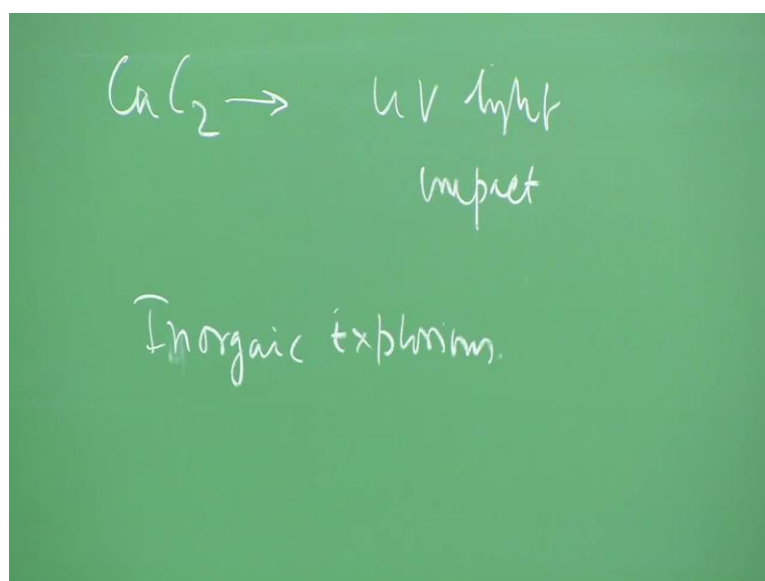 CaC₂ → UV light
impact
Inorgaic Explosions.